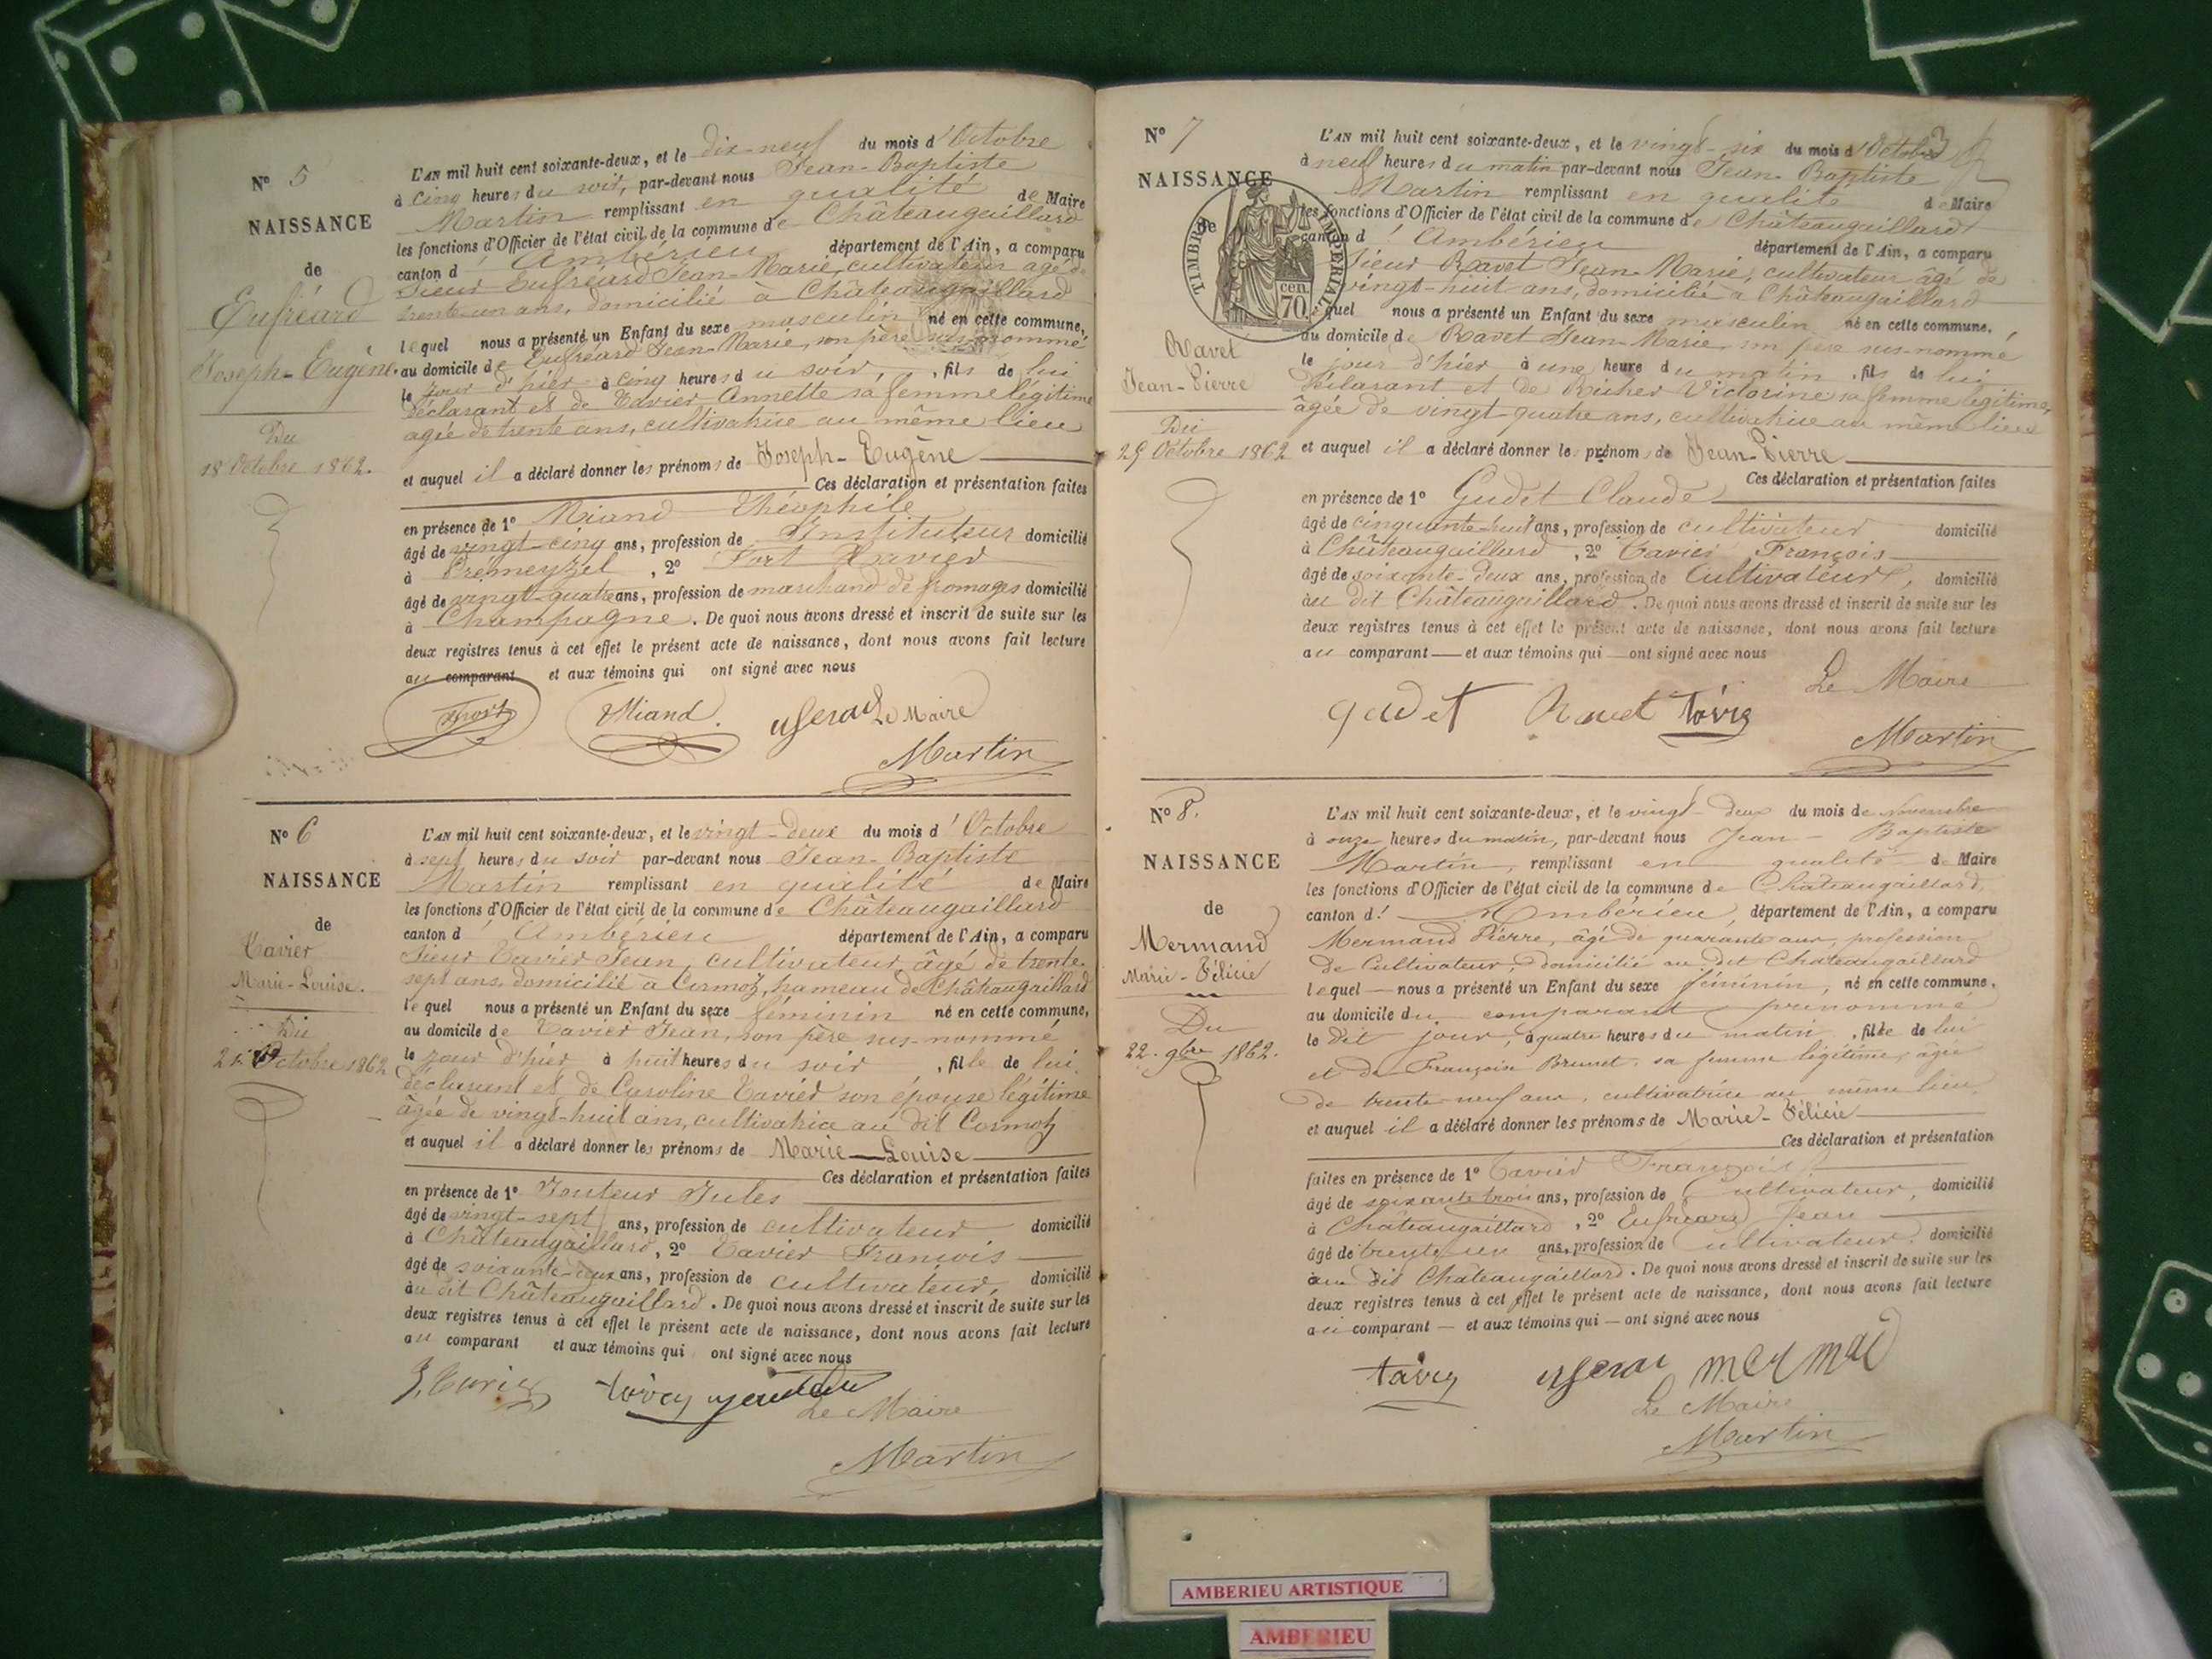 N° 5
NAISSANCE
de
Eufréard
Joseph-Eugène.
Du
18 Octobre 1862.
L'AN mil huit cent soixante-deux, et le dix-neuf du mois d'Octobre
à cinq heures du soir, par-devant nous Jean-Baptiste
Martin remplissant en qualité de Maire
les fonctions d'Officier de l'état civil de la commune de Châteaugaillard
canton d'Ambérieu département de l'Ain, a comparu
Sieur Eufréard Jean-Marie, cultivateur âgé de
trente-un ans, domicilié à Châteaugaillard
lequel nous a présenté un Enfant du sexe masculin né en cette commune,
au domicile de Eufréard Jean-Marie, son père sus-nommé
le jour d'hier à cinq heures du soir, fils de lui
déclarant et de Tavier Annette sa femme légitime
agée de trente ans, cultivatrice au même lieu
et auquel il a déclaré donner les prénoms de Joseph-Eugène
Ces déclaration et présentation faites
en présence de 1° Miand Théophile
âgé de vingt-cinq ans, profession de Instituteur domicilié
à Prémeyzel, 2° Fort Xavier
âgé de vingt-quatre ans, profession de marchand de fromages domicilié
à Champagne. De quoi nous avons dressé et inscrit de suite sur les
deux registres tenus à cet effet le présent acte de naissance, dont nous avons fait lecture
au comparant et aux témoins qui ont signé avec nous
Miand. Le Maire
Martin
N° 6
NAISSANCE
de
Tavier
Marie-Louise.
Du
21 Octobre 1862
L'AN mil huit cent soixante-deux, et le vingt-deux du mois d'Octobre
à sept heures du soir par-devant nous Jean-Baptiste
Martin remplissant en qualité de Maire
les fonctions d'Officier de l'état civil de la commune de Châteaugaillard
canton d'Ambérieu département de l'Ain, a comparu
Sieur Tavier Jean, cultivateur âgé de trente-
sept ans, domicilié à Cormoz, hameau de Châteaugaillard
lequel nous a présenté un Enfant du sexe féminin né en cette commune,
au domicile de Tavier Jean, son père sus-nommé
le jour d'hier à huit heures du soir, fille de lui
déclarant et de Caroline Tavier son épouse légitime
âgée de vingt-huit ans, cultivatrice au dit Cormoz
et auquel il a déclaré donner les prénoms de Marie-Louise
Ces déclaration et présentation faites
en présence de 1° Jouteur Jules
âgé de vingt-sept ans, profession de cultivateur domicilié
à Châteaugaillard, 2° Tavier François
âgé de soixante-deux ans, profession de cultivateur, domicilié
au dit Châteaugaillard. De quoi nous avons dressé et inscrit de suite sur les
deux registres tenus à cet effet le présent acte de naissance, dont nous avons fait lecture
au comparant et aux témoins qui ont signé avec nous
Le Maire
Martin
N° 7
NAISSANCE
de
TIMBRE IMPERIAL
70 cen.
Ravet
Jean-Pierre
Du
25 Octobre 1862
L'AN mil huit cent soixante-deux, et le vingt-six du mois d'Octobre
à neuf heures du matin par-devant nous Jean-Baptiste
Martin remplissant en qualité de Maire
les fonctions d'Officier de l'état civil de la commune de Châteaugaillard
canton d'Ambérieu département de l'Ain, a comparu
Sieur Ravet Jean-Marie, cultivateur âgé de
vingt-huit ans, domicilié à Châteaugaillard
lequel nous a présenté un Enfant du sexe masculin né en cette commune,
au domicile de Ravet Jean-Marie son père sus-nommé
le jour d'hier à une heure du matin, fils de lui
déclarant et de Richer Victorine sa femme légitime,
âgée de vingt-quatre ans, cultivatrice au même lieu
et auquel il a déclaré donner les prénoms de Jean-Pierre
Ces déclaration et présentation faites
en présence de 1° Gudet Claude
âgé de cinquante-huit ans, profession de cultivateur domicilié
à Châteaugaillard, 2° Tavier François
âgé de soixante-deux ans, profession de Cultivateur, domicilié
au dit Châteaugaillard. De quoi nous avons dressé et inscrit de suite sur les
deux registres tenus à cet effet le présent acte de naissance, dont nous avons fait lecture
au comparant et aux témoins qui ont signé avec nous
Le Maire
gudet Ravet
Martin
N° 8.
NAISSANCE
de
Mermand
Marie-Félicie
Du
22. 9bre 1862.
L'AN mil huit cent soixante-deux, et le vingt-deux du mois de novembre
à onze heures du matin, par-devant nous Jean-Baptiste
Martin, remplissant en qualité de Maire
les fonctions d'Officier de l'état civil de la commune de Châteaugaillard,
canton d'Ambérieu, département de l'Ain, a comparu
Mermand Pierre, âgé de quarante ans, profession
de Cultivateur, domicilié au dit Châteaugaillard
lequel nous a présenté un Enfant du sexe féminin, né en cette commune,
au domicile du comparant prénommé
le dit jour, à quatre heures du matin, fille de lui
et de Françoise Brunet, sa femme légitime, âgée
de trente-neuf ans, cultivatrice au même lieu
et auquel il a déclaré donner les prénoms de Marie-Félicie
Ces déclaration et présentation
faites en présence de 1° Tavier François
âgé de soixante trois ans, profession de Cultivateur, domicilié
à Châteaugaillard, 2° Eufréard Jean
âgé de trente un ans, profession de Cultivateur, domicilié
au dit Châteaugaillard. De quoi nous avons dressé et inscrit de suite sur les
deux registres tenus à cet effet le présent acte de naissance, dont nous avons fait lecture
au comparant et aux témoins qui ont signé avec nous
Le Maire
Martin
AMBERIEU ARTISTIQUE
AMBERIEU